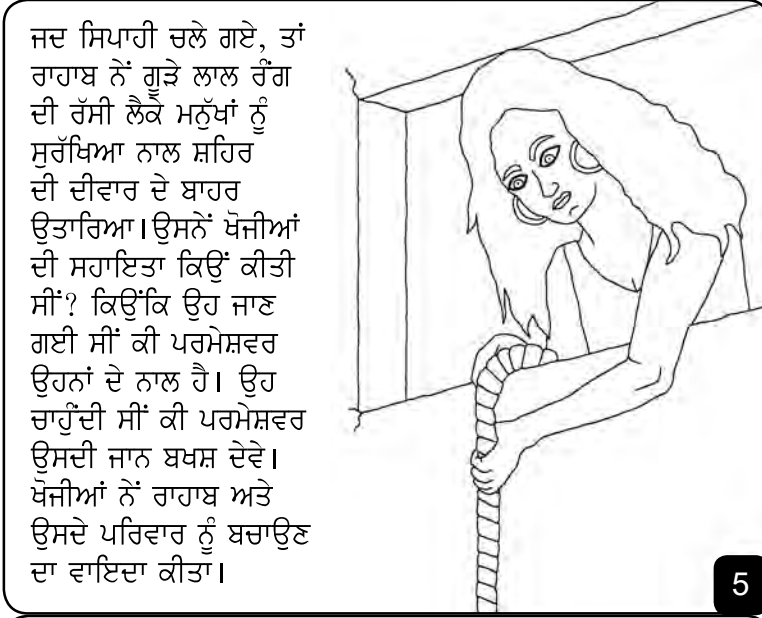 ਜਦ ਸਿਪਾਹੀ ਚਲੇ ਗਏ, ਤਾਂ
ਰਾਹਾਬ ਨੇਂ ਗੂੜੇ ਲਾਲ ਰੰਗ
ਦੀ ਰੱਸੀ ਲੈਕੇ ਮਨੁੱਖਾਂ ਨੂੰ
ਸੁਰੱਖਿਆ ਨਾਲ ਸ਼ਹਿਰ
ਦੀ ਦੀਵਾਰ ਦੇ ਬਾਹਰ
ਉਤਾਰਿਆ।ਉਸਨੇਂ ਖੋਜੀਆਂ
ਦੀ ਸਹਾਇਤਾ ਕਿਉਂ ਕੀਤੀ
ਸੀਂ? ਕਿਉਂਕਿ ਉਹ ਜਾਣ
ਗਈ ਸੀਂ ਕੀ ਪਰਮੇਸ਼ਵਰ
ਉਹਨਾਂ ਦੇ ਨਾਲ ਹੈ। ਉਹ
ਚਾਹੁੰਦੀ ਸੀਂ ਕੀ ਪਰਮੇਸ਼ਵਰ
ਉਸਦੀ ਜਾਨ ਬਖਸ਼ ਦੇਵੇ।
ਖੋਜੀਆਂ ਨੇਂ ਰਾਹਾਬ ਅਤੇ
ਉਸਦੇ ਪਰਿਵਾਰ ਨੂੰ ਬਚਾਉਣ
ਦਾ ਵਾਇਦਾ ਕੀਤਾ।
5